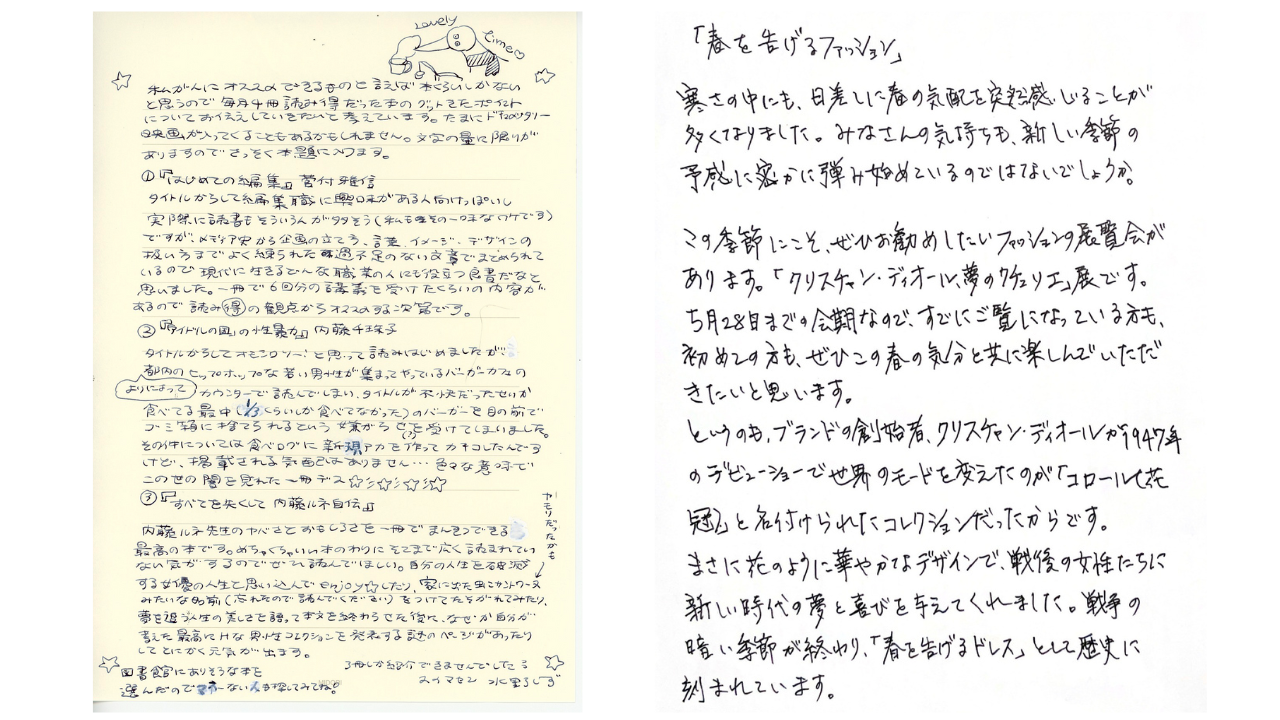 Lovely
time♡
私がんにオススメできるものと言えば本くらいしかない
と思うので毎月4冊読み得だった本のグットきたポイント
についてお伝えしていきたいと考えています。たまにドキュメンタリー
映画が入ってくることもあるかもしれません。文字の量に限りが
ありますのでさっそく本題に入ります。
①『はじめての編集』菅付雅信
タイトルからして編集職に興味がある人向けっぽいし
実際に読者もそういう人が多そう(私もその一味なワケです)
ですが、メディア史から企画の立て方、言葉、イメージ、デザインの
扱い方までよく練られた過不足のない文章でまとめられて
いるので現代に生きるどんな職業の人にも役立つ良書だなと
思いました。一冊で6回分の講義を受けたくらいの内容が
あるので読み得の観点からオススメする次第です。
②『「アイドルの国」の性暴力』内藤千珠子
タイトルからしてオモシロソー!と思って読みはじめましたが、
都内のヒップホップな若い男性が集まってやっているバーガーカフェの
よりによって
カウンターで読んでしまい、タイトルが不快だったせいか
食べてる最中(1/3くらいしか食べてなかった)のバーガーを目の前で
ゴミ箱に捨てられるという嫌がらせを受けてしまいました。
(?)
その件については食べログに新規アカを作ってカキコしたんです
けど、掲載される気配はありません…色々な意味で
この世の闇を見れた一冊デス☆シ☆シ☆シ☆
③『すべてを失くして 内藤ルネ自伝』
内藤ルネ先生のヤバさとおもしろさを一冊でまんきつできる
最高の本です。めちゃくちゃいい本のわりにそこまで広く読まれてい
ない気がするのでぜひ読んでほしい。自分の人生を破滅
する女優の人生と思い込んでenjoy☆したり、家に出た虫にカントワーヌ
みたいな名前(忘れたので読んでください)をつけてたそがれてみたり、
ヤモリだったかも
夢を追う人生の美しさを語って本文を終わらせた後に、なぜか自分が
考えた最高にHな男性コレクションを発表する謎のページがあったり
してとにかく元気が出ます。
図書館にありそうな本を
選んだのでお金ない人も探してみてね!
3冊しか紹介できませんでした
スイマセン 水野しず
「春を告げるファッション」
寒さの中にも、日差しに春の気配を突然感じることが
多くなりました。みなさんの気持ちも、新しい季節の
予感に密かに弾み始めているのではないでしょうか。
この季節にこそ、ぜひお勧めしたいファッションの展覧会が
あります。「クリスチャン・ディオール、夢のクチュリエ」展です。
5月28日までの会期なので、すでにご覧になっている方も、
初めての方も、ぜひこの春の気分と共に楽しんでいただ
きたいと思います。
というのも、ブランドの創始者、クリスチャン・ディオールが1947年
のデビューショーで世界のモードを変えたのが「コロール(花
冠)」と名付けられたコレクションだったからです。
まさに花のように華やかなデザインで、戦後の女性たちに
新しい時代の夢と喜びを与えてくれました。戦争の
暗い季節が終わり、「春を告げるドレス」として歴史に
刻まれています。